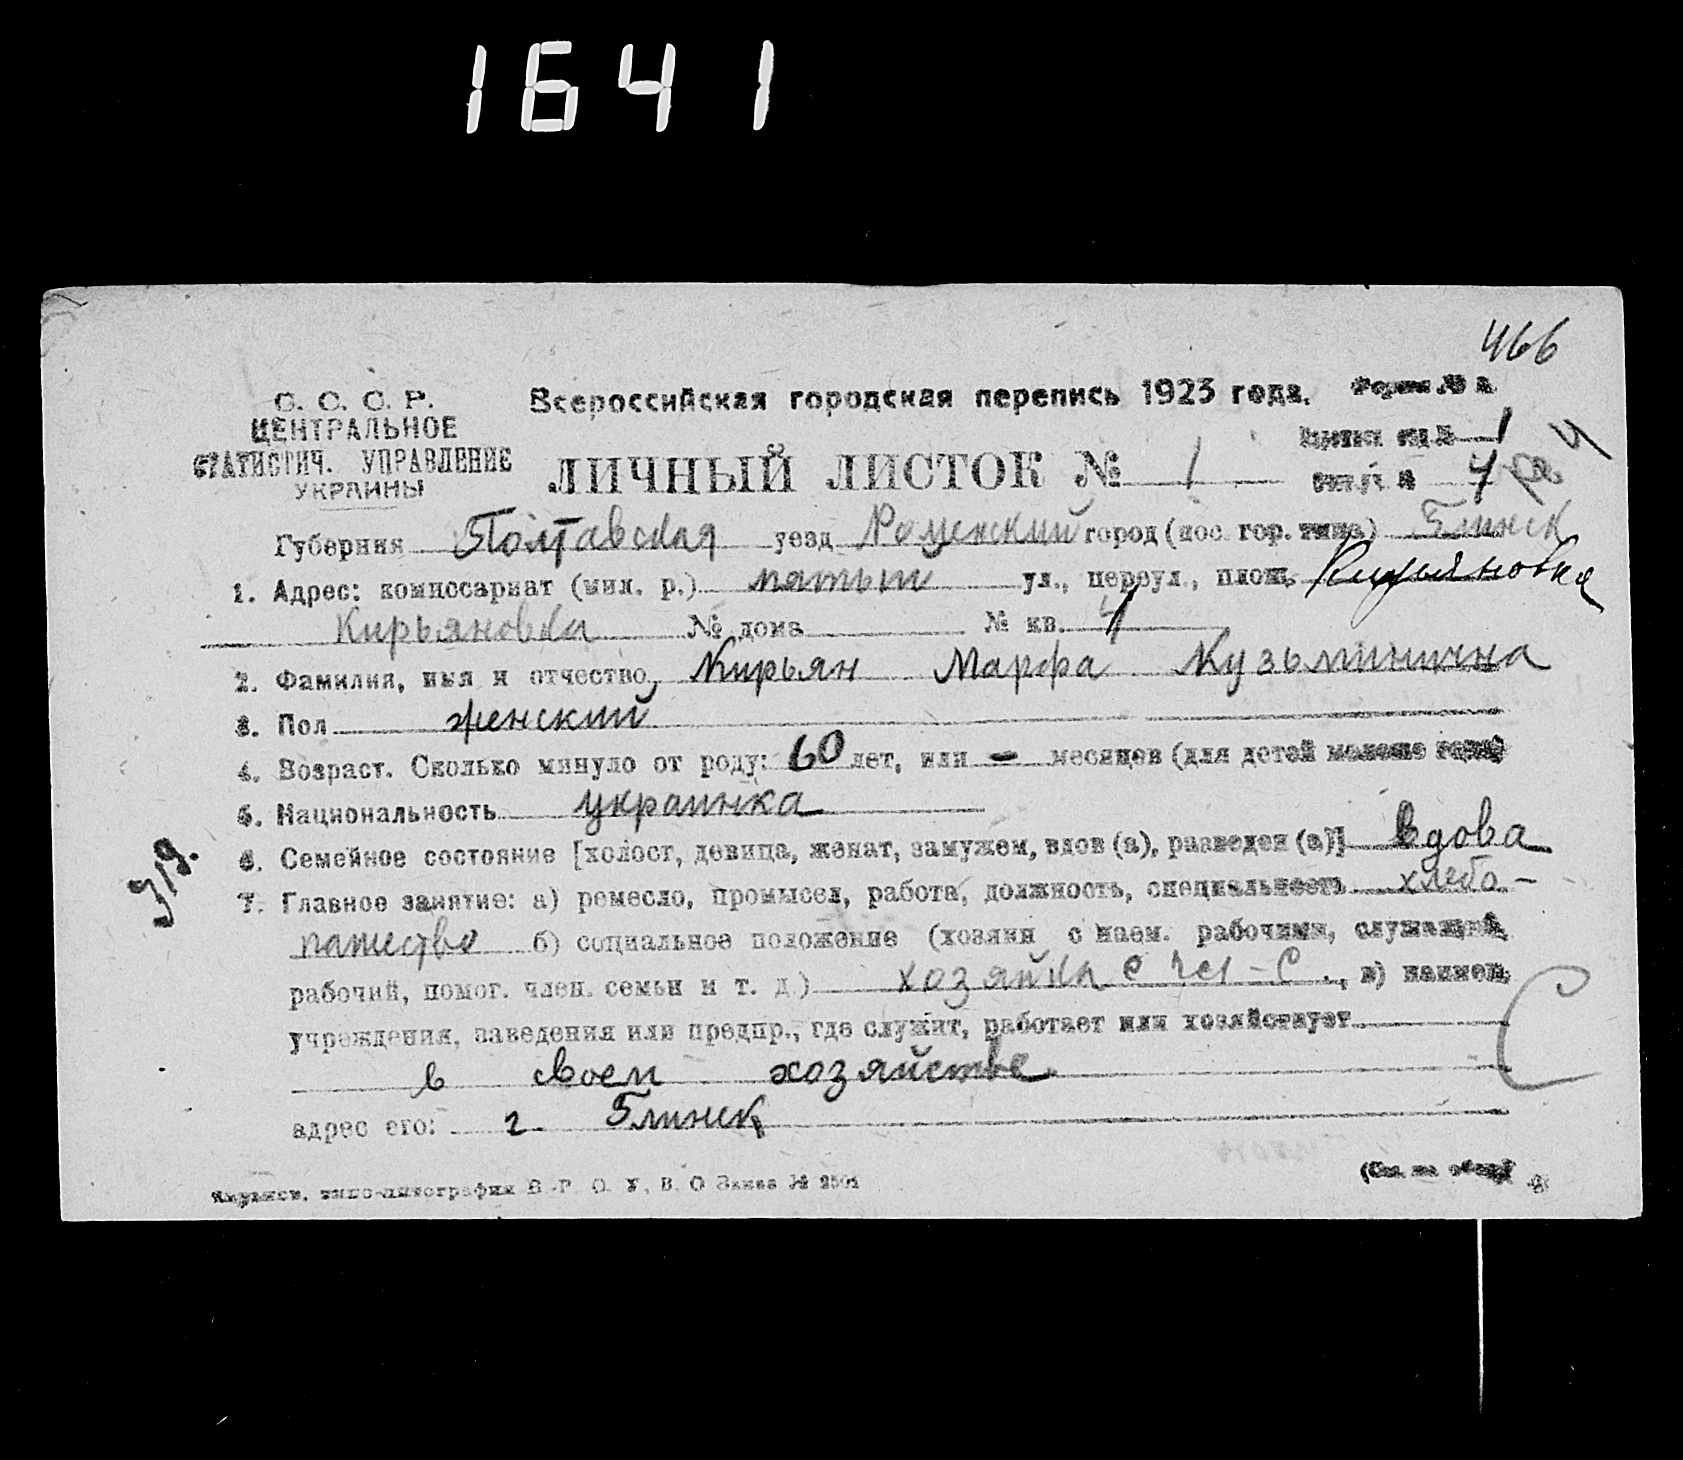 1641
466
С. С. С. Р.
ЦЕНТРАЛЬНОЕ
СТАТИСТИЧ. УПРАВЛЕНИЕ
УКРАИНЫ
Всероссийская городская перепись 1923 года.
ЛИЧНЫЙ ЛИСТОК № 1
1
4
4
Губерния Полтавская уезд Роменский город (пос. гор. типа) Глинск
1. Адрес: комиссариат (мил. р.) пятый ул., переул., площ. Кирьяновка
Кирьяновка № дома № кв. 4
2. Фамилия, имя и отчество, Кирьян Марфа Кузьминична
3. Пол женский
4. Возраст. Сколько минуло от роду: 60 лет, или – месяцев (для детей моложе года)
5. Национальность украинка
6. Семейное состояние [холост, девица, женат, замужем, вдов (а), разведен (а)] вдова
7. Главное занятие: а) ремесло, промысел, работа, должность, специальность хлебо-
пашество б) социальное положение (хозяин с наем. рабочими, служащий,
рабочий, помог. член. семьи и т. д.) хозяйка с чл-с., в) наимен.
учреждения, заведения или предпр., где служит, работает или хозяйствует
в своем хозяйстве
адрес его: г. Глинск
319.
типо-литография В. Р. О. У. В. О Заказ №
(См. на обор.)